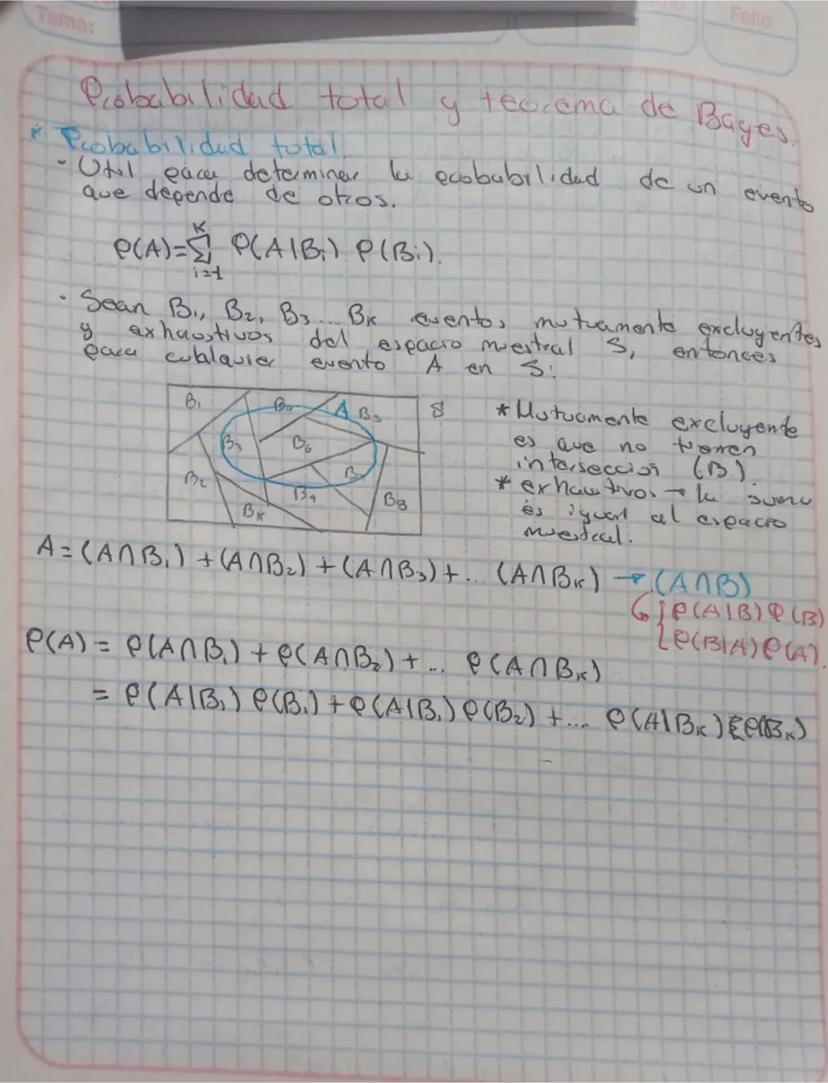 Tema:
Folio
Probabilidad total y teorema de Bayes.
* Probabilidad total
- Útil para determinar la probabilidad de un evento
que depende de otros.
P(A)=∑ᵢ₌₁ᴷ P(A|Bi) P(Bi).
· Sean B₁, B₂, B₃... Bk eventos mutuamente excluyentes
y exhaustivos del espacio muestral S, entonces
para cualquier evento A en S:
B₁ B₄ A B₅ S
B₃ B₆
B₂ B₉ B₈
Bk
* Mutuamente excluyente
es que no tienen
intersección (B).
* exhaustivos → la suma
es igual al espacio
muestral.
A = (A∩B₁) + (A∩B₂) + (A∩B₃) + ... (A∩Bk) → (A∩B)
P(A|B) P(B)
P(B|A) P(A).
P(A) = P(A∩B₁) + P(A∩B₂) + ... P(A∩Bk)
= P(A|B₁) P(B₁) + P(A|B₁) P(B₂) + ... P(A|Bk) P(Bk)